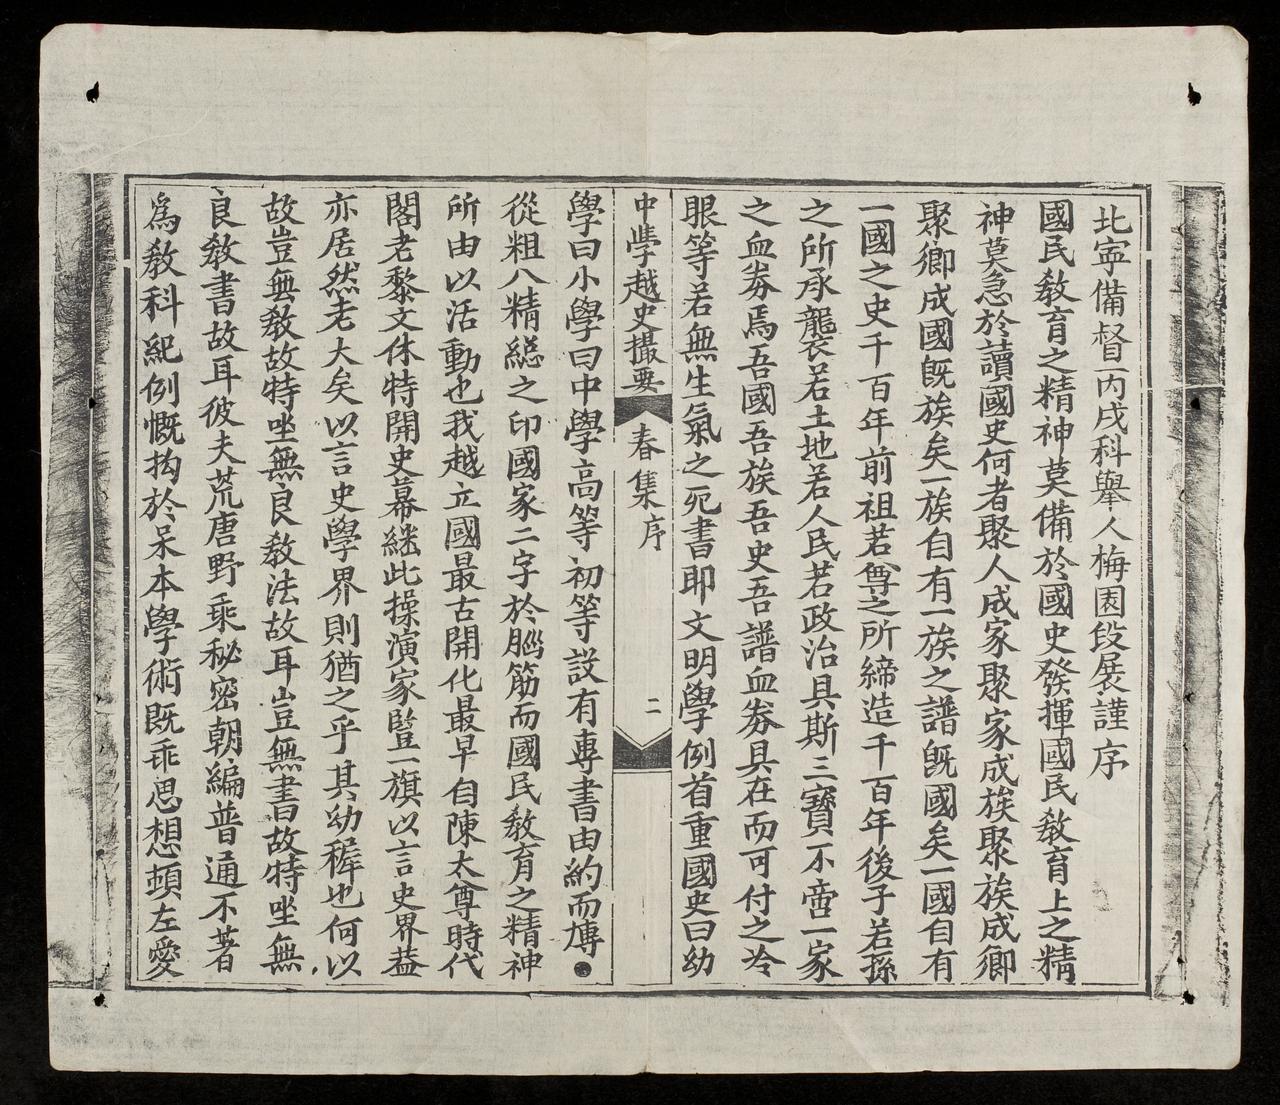 北寧備督丙戌科舉人梅園段展謹序
國民敎育之精神莫備於國史發揮國民敎育上之精
神莫急於讀國史何者聚人成家聚家成族聚族成鄉
聚鄉成國旣族矣一族自有一族之譜旣國矣一國自有
一國之史千百年前祖若尊之所締造千百年後子若孫
之所承襲若土地若人民若政治具斯三寶不啻一家
之血券焉吾國吾族吾史吾譜血券具在而可付之冷
眼等若無生氣之死書耶文明學例首重國史曰幼
中學越史撮要
春集序
二
學曰小學曰中學高等初等設有專書由約而博
從粗入精總之印國家二字於腦筋而國民敎育之精神
所由以活動也我越立國最古開化最早自陳太尊時代
閣老黎文休特開史幕繼此操演家豎一旗以言史界蓋
亦居然老大矣以言史學界則猶之乎其幼穉也何以
故豈無敎故特坐無良敎法故耳豈無書故特坐無
良敎書故耳彼夫荒唐野乘秘密朝編普通不著
爲敎科紀例慨拘於呆本學術既乖思想頓左愛